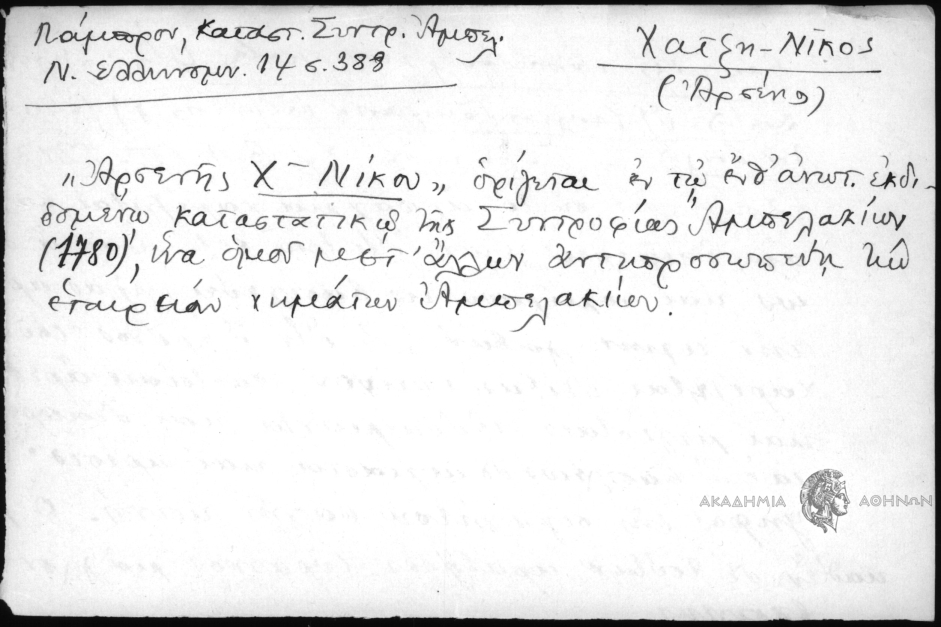 Λάμπρου, Καταστ. Συντρ. Ἀμπελ.
Ν. Ἑλληνομν. 14 σ. 388
Χατζῆ-Νίκος
(Ἀρσένης)
"Ἀρσενῆς Χ" Νίκου" ὁρίζεται ἐν τῷ ἔνθ' ἀνωτ. ἐκδι-
δομένῳ καταστατικῷ τῆς Συντροφίας Ἀμπελακίων
(1780), ἵνα ὁμοῦ μετ' ἄλλων ἀντιπροσωπεύῃ τὴν
ἑταιρείαν χημάτων Ἀμπελακίων.
ΑΚΑΔΗΜΙΑ ΑΘΗΝΩΝ